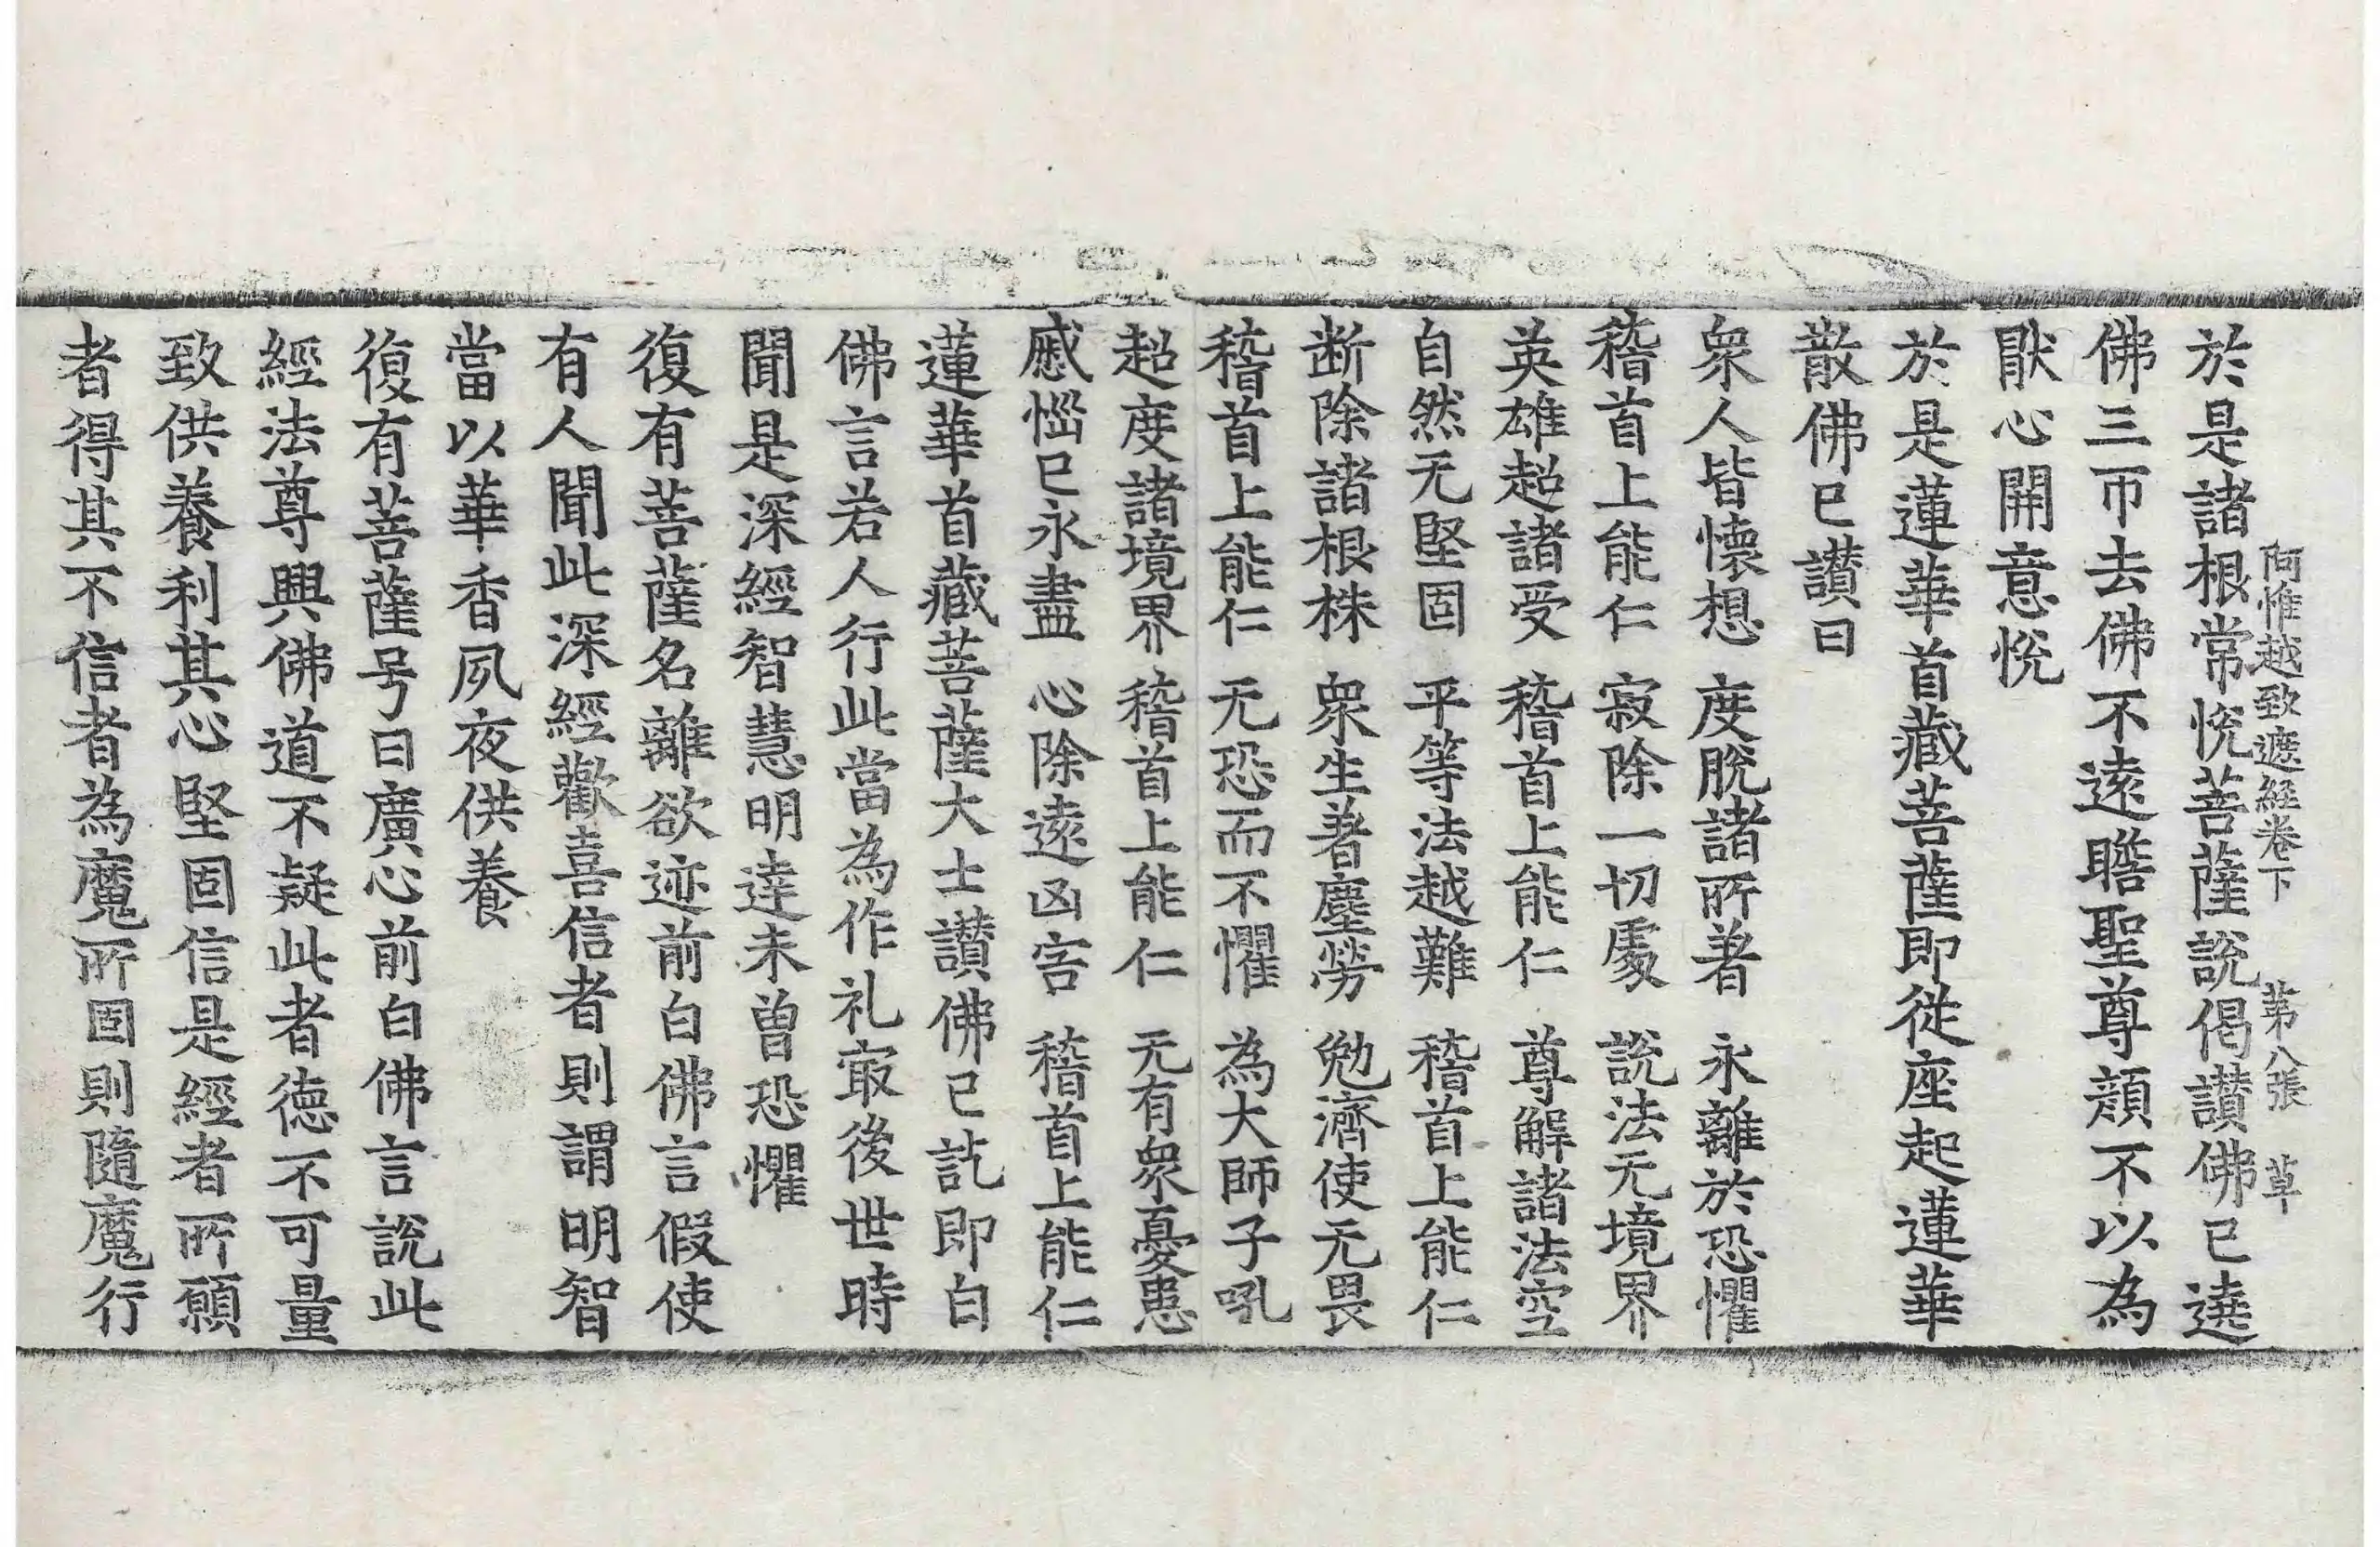 阿惟越致遮經卷下　第八張　草
於是諸根常悅菩薩說偈讃佛已遶
佛三帀去佛不遠瞻聖尊顔不以為
猒心開意悅
於是蓮華首藏菩薩即從座起蓮華
散佛已讃曰
衆人皆懷想　度脫諸所著　永離於恐懼
稽首上能仁　寂除一切處　說法无境界
英雄超諸受　稽首上能仁　尊解諸法空
自然无堅固　平等法越難　稽首上能仁
断除諸根株　衆生著塵勞　勉濟使无畏
稽首上能仁　无恐而不懼　為大師子吼
超度諸境界　稽首上能仁　无有衆憂患
慼惱已永盡　心除遠凶害　稽首上能仁
蓮華首藏菩薩大士讃佛已訖即白
佛言若人行此當為作礼㝡後世時
聞是深經智慧明達未曾恐懼
復有菩薩名離欲迹前白佛言假使
有人聞此深經歡喜信者則謂明智
當以華香夙夜供養
復有菩薩号曰廣心前白佛言說此
經法尊興佛道不疑此者德不可量
致供養利其心堅固信是經者所願
者得其不信者為魔所固則隨魔行